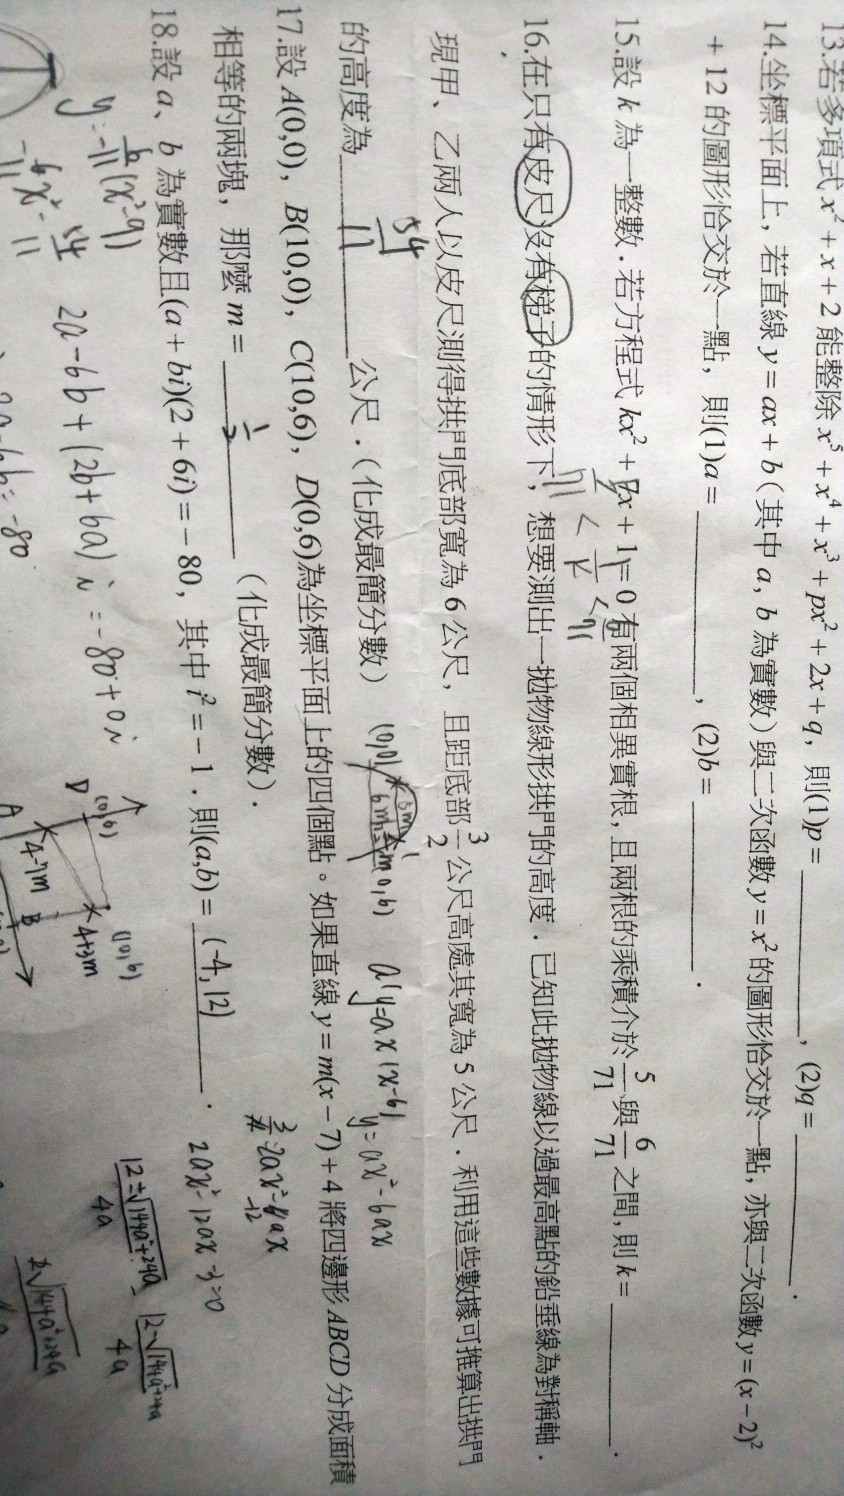 13.若多項式 x² + x + 2 能整除 x⁵ + x⁴ + x³ + px² + 2x + q，則(1)p = ________，(2)q = ________．
14.坐標平面上，若直線 y = ax + b（其中 a, b 為實數）與二次函數 y = x² 的圖形恰交於一點，亦與二次函數 y = (x − 2)²
+ 12 的圖形恰交於一點，則(1)a = ________，(2)b = ________．
15.設 k 為一整數．若方程式 kx² + 7x + 1 = 0 有兩個相異實根，且兩根的乘積介於 5/71 與 6/71 之間，則 k = ________．
16.在只有皮尺沒有梯子的情形下，想要測出一拋物線形拱門的高度．已知此拋物線以過最高點的鉛垂線為對稱軸．
現甲、乙兩人以皮尺測得拱門底部寬為 6 公尺，且距底部 3/2 公尺高處其寬為 5 公尺．利用這些數據可推算出拱門
的高度為 54/11 公尺．（化成最簡分數）
(0,0)
y=ax(x-6)
y=ax²-6ax
17.設 A(0,0)，B(10,0)，C(10,6)，D(0,6)為坐標平面上的四個點。如果直線 y = m(x − 7) + 4 將四邊形 ABCD 分成面積
相等的兩塊，那麼 m = 1/2 （化成最簡分數）．
18.設 a、b 為實數且(a + bi)(2 + 6i) = − 80，其中 i² = − 1．則(a,b) = (-4,12)．
2ax²-12ax-3=0
2a-6b+(2b+6a)i=-80+0i
2a-6b=-80
D
(0,6)
(10,6)
4+3m
4-7m
A
B